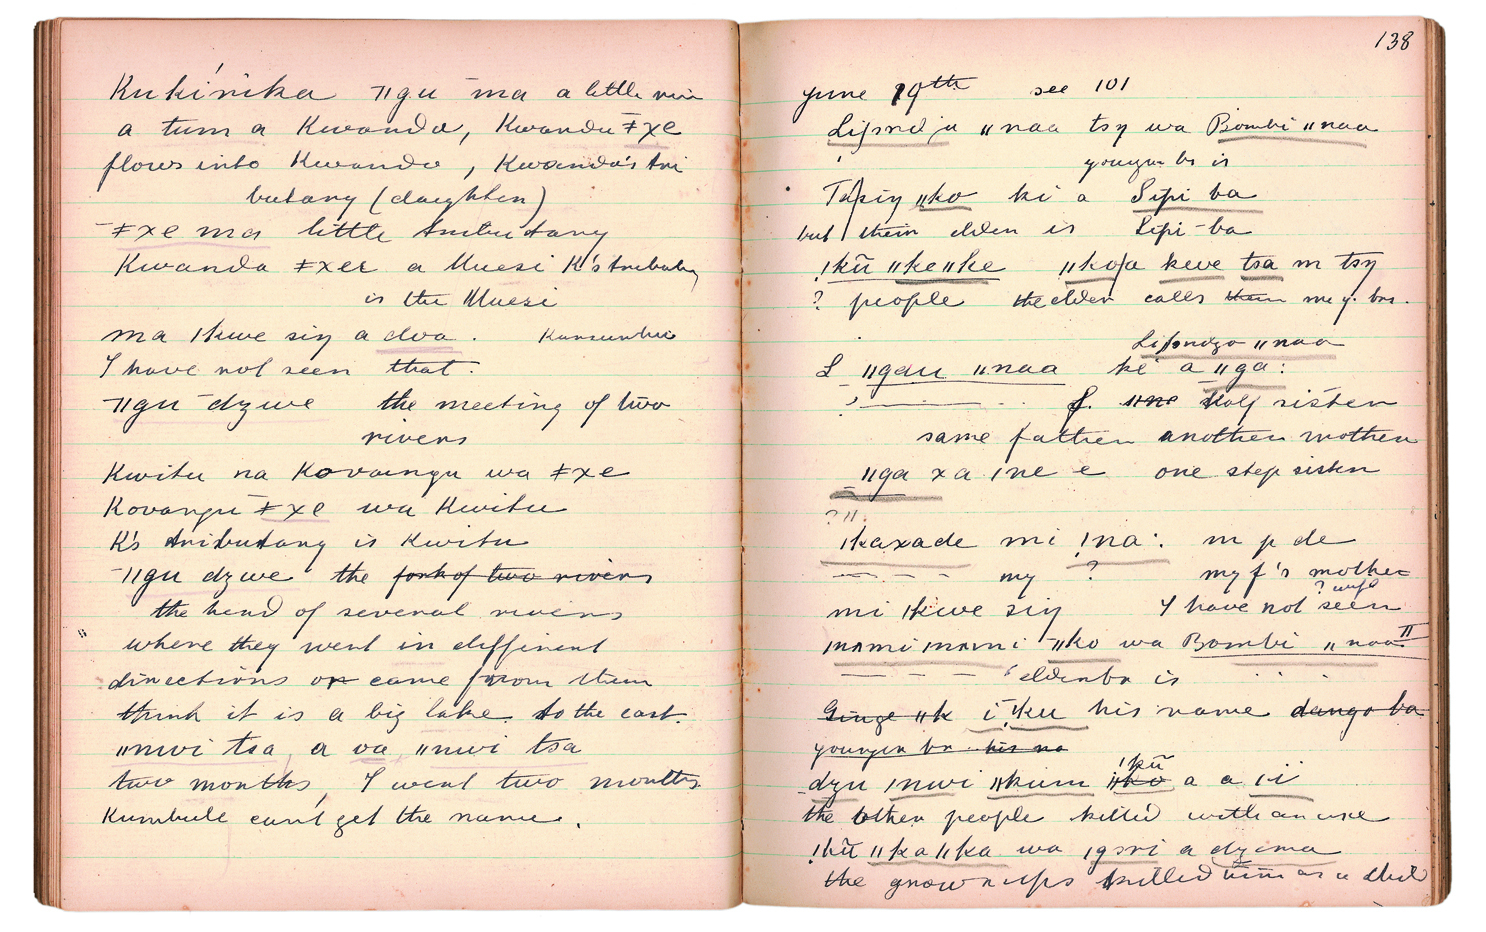 Kukinika ǁgu ma a little riv
a turn a Kwando, Kwandu ǂxe
flows into Kwando, Kwando's tri
butary (daughter)
ǂxe ma little tributary
Kwando ǂxee a Muezi K's tributary
is the Muezi
ma ǀkwe siŋ a doa. Kansumbu
I have not seen that.
ǁgu dzwe the meeting of two
rivers
Kwitu na Kovangu wa ǂxe
Kovangu ǂxe wa Kwitu
K's tributary is Kwitu
ǁgu dzwe the fork of two rivers
the head of several rivers
where they went in different
directions or came from them
think it is a big lake to the east.
ǁnwi tsa, a oa ǁnwi tsa
two months, I went two months
Kumbule can't get the name.
138
June 19th see 101
ǁnaa tsy wa Bombi ǁnaa
younger br is
ǁko ki a Sipi ba
but their elder is Sipi-ba
ǃkũ ǁkeǁke ǁkoja keve tsa m tsy
? people the elder calls them me y. brs.
ǁnaa
L ǁgau ǁnaa ke a ǁga:
? half sister
same father another mother
ǁga xa ǀne e one step sister
?ǁ
ǀkaxade mi ǃna: m p de
my ? my f's mother
? wife
mi ǀkwe siŋ I have not seen
mami mami ǁko wa Bombi ǁnaa II
elder br is
Ginge ǁk i ǃku his name dango ba
younger br his na
ǃkũ
dzu ǀnwi ǁkum ǁko a a ii
the other people killed with an axe
ǃkũ ǁkaǁka wa ǀgori a dzema
the grown ups killed him as a child